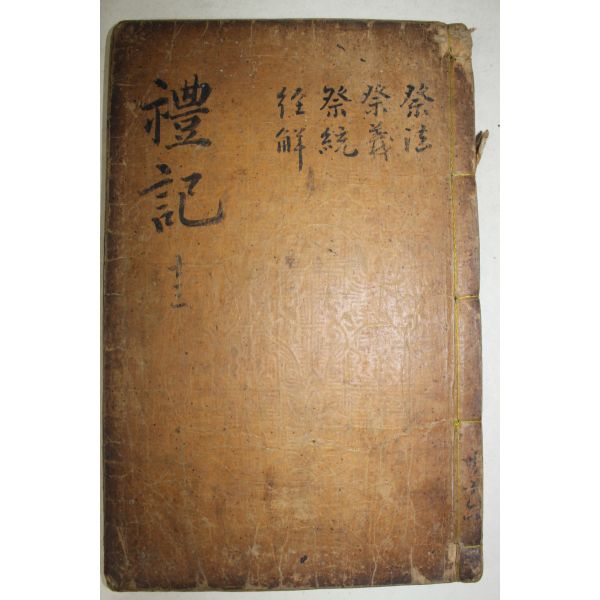 祭法
祭義
祭統
經觧
禮記
十三